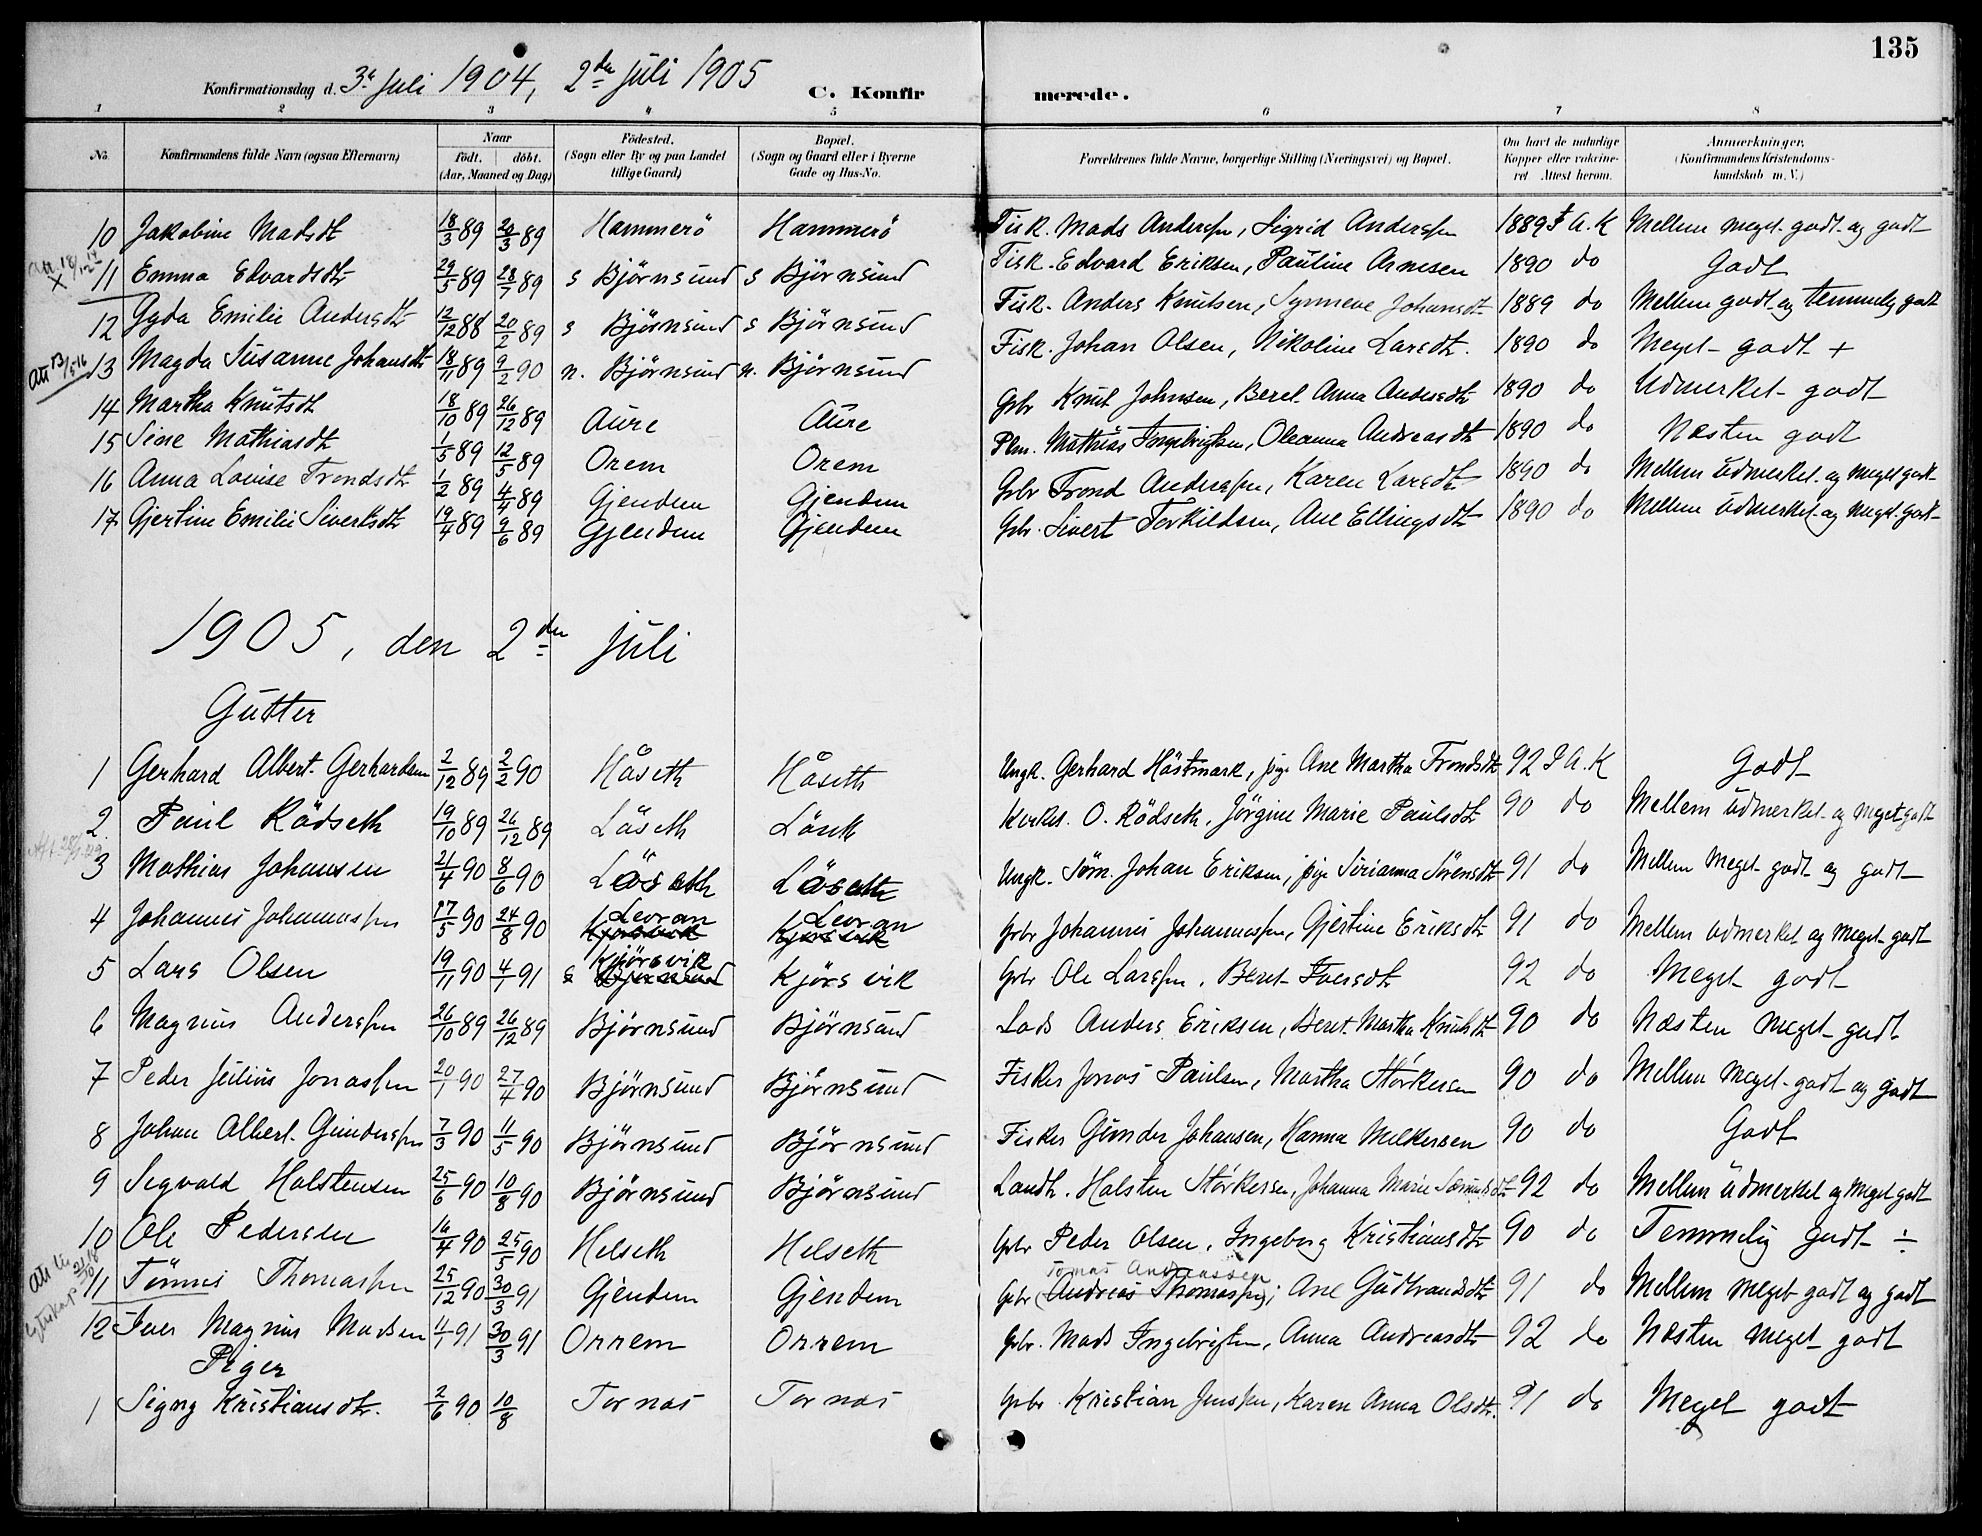 135
Konfirmationsdag d. 3die Juli 1904, 2den Juli 1905 C. Konfirmerede.
1 2 3 4 5 6 7 8
No. Konfirmandens fulde Navn (ogsaa Efternavn) Naar födt. döbt. (Aar, Maaned og Dag) Födested. (Sogn eller By og paa Landet tillige Gaard) Bopæl. (Sogn og Gaard eller i Byerne Gade og Hus-No. Forældrenes fulde Navne, borgerlige Stilling (Næringsvei) og Bopæl. Om havt de naturlige Kopper eller vaccineret Attest herom. Anmærkninger, (Konfirmandens Kristendomskundskab m. V.)
10 Jakobine Madsdt 18/3 89 20/3 89 Hammerö Hammerö Fisk. Mads Anderssen, Sigrid Anderssen 1889 J A. K Mellem meget godt og godt
Att 18/12 14 X
11 Emma Edvardsdtr 29/5 89 28/7 89 s Björnsund s Björnsund Fisk. Edvard Eriksen, Pauline Arnesen 1890 do Godt
12 Gyda Emilie Andersdtr 12/12 88 20/2 89 s Björnsund s Björnsund Fisk. Anders Knutsen, Synneve Johansdtr 1889 do Mellem godt og temmelig godt
Att 13/5 16
13 Magda Susanne Johansdtr 18/11 89 9/2 90 n. Björnsund n. Björnsund Fisk. Johan Olsen, Nikoline Larsdtr. 1890 do Meget godt +
14 Martha Knutsdt 18/10 89 26/12 89 Aure Aure Gbr Knut Johnsen, Beret Anna Andersdtr 1890 do Udmerket godt
15 Sine Mathiasdtr 1/5 89 12/5 89 Orem Orem Plm. Mathias Ingebrigtsen, Oleanna Andreasdtr 1890 do Næsten godt
16 Anna Lovise Trondsdtr 1/2 89 4/4 89 Gjendem Gjendem Gbr Trond Anderssen, Karen Larsdtr 1890 do Mellem udmerket og meget godt
17 Gjertine Emilie Sivertsdtr 19/4 89 9/6 89 Gjendem Gjendem Gbr. Sivert Torkildsen, Ane Ellingsdtr 1890 do Mellem udmerket og meget godt
1905, den 2den Juli
Gutter
1 Gerhard Albert Gerhardsen 2/12 89 2/2 90 Håseth Håseth Ungk. Gerhard Höstmark, pige Ane Martha Trondsdtr 92 J A. K Godt
2 Paul Rödseth 19/10 89 26/12 89 Löseth Löseth Kirkes. O. Rödseth, Jörgine Marie Paulsdtr 90 do Mellem udmerket og meget godt
3 Mathias Johansen 21/4 90 8/6 90 Löseth Löseth Ungk. Söm. Johan Eriksen, pige Sirianna Sörensdtr 91 do Mellem meget godt og godt
4 Johannes Johannessen 17/5 90 24/8 90 Leoran Leoran Gbr Johannes Johannessen, Gjertine Eriksdtr 91 do Mellem udmerket og meget godt
5 Lars Olsen 19/11 90 4/1 91 Kjörsvik Kjörsvik Gbr Ole Larssen, Beret Iversdtr 92 do Meget godt
6 Magnus Anderssen 26/10 89 26/12 89 Björnsund Björnsund Lods Anders Eriksen, Beret Martha Knutsdtr 90 do Næsten meget godt
7 Peder Julius Jonassen 20/1 90 27/4 90 Björnsund Björnsund Fisker Jonas Paulsen, Martha Störkersen 90 do Mellem meget godt og godt
8 Johan Albert Gunderssen 7/3 90 11/5 90 Björnsund Björnsund Fisker Gunder Johansen, Hanna Melkersen 90 do Godt
9 Sigvald Halstensen 25/6 90 10/8 90 Björnsund Björnsund Landh. Halsten Störkersen, Johanna Marie 92 do Mellem udmerket og meget godt
10 Ole Pedersen 16/4 90 25/5 90 Helseth Helseth Gbr Peder Olsen, Ingeborg Kristiansdtr 90 do Temmelig godt ÷
11 Tönnes Thomassen 25/12 90 30/3 91 Gjendem Gjendem Gbr (Andreas Thomassen) Tomas Andreassen; Ane Gudbrandsdtr 91 do Mellem meget godt og godt
12 Iver Magnus Madsen 4/1 91 30/3 91 Orrem Orrem Gbr. Mads Ingebrigtsen, Anna Andreasdtr 92 do Næsten meget godt
Piger
1 Signy Kristiansdtr. 2/6 90 10/8 Tornas Tornas Gbr. Kristian Jenssen, Karen Anna Olsdtr. 91 do Meget godt